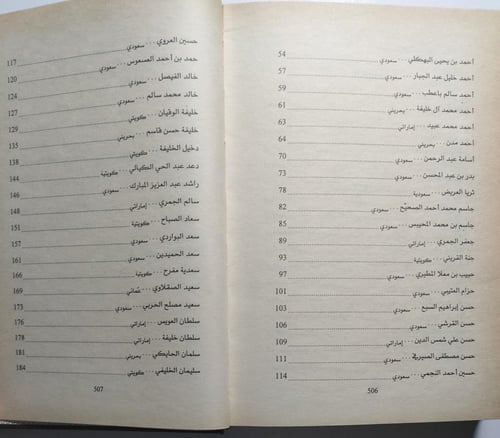 أحمد بن يحيى البهكلي... سعودي 54
أحمد خليل عبد الجبار... سعودي 57
أحمد سالم باعطب... سعودي 59
أحمد محمد آل خليفة... بحريني 61
أحمد محمد عبيد... إماراتي 63
أحمد مدن... بحريني 64
أسامة عبد الرحمن... سعودي 70
بدر بن عبد المحسن... سعودي 73
ثريا العريض... سعودية 78
جاسم محمد أحمد الصحيّح... سعودي 82
جاسم بن محمد المحيبس... سعودي 85
جعفر الجمري... إماراتي 89
جنة القريني... كويتية 93
حبيب بن معلا المطيري... سعودي 97
حزام العتيبي... سعودي 101
حسن إبراهيم السبع... سعودي 103
حسن القرشي... سعودي 106
حسن علي شمس الدين... إماراتي 109
حسن مصطفى الصيرفي... سعودي 111
حسين أحمد النجمي... سعودي 114
506
حسين العروي... سعودي 117
حمد بن أحمد العسعوس... سعودي 120
خالد الفيصل... سعودي 124
خالد محمد سالم... سعودي 127
خليفة الوقيان... كويتي 129
خليفة حسن قاسم... بحريني 135
دخيل الخليفة... كويتي 138
دعد عبد الحي الكيالي... كويتية 144
راشد عبد العزيز المبارك... سعودي 146
سالم الجمري... إماراتي 148
سعاد الصباح... كويتية 151
سعد البواردي... سعودي 157
سعد الحميدين... سعودي 161
سعدية مفرح... كويتية 166
سعيد الصقلاوي... عُماني 169
سعيد مصلح الحربي... سعودي 175
سلطان العويس... إماراتي 176
سلطان خليفة... إماراتي 178
سلمان الحايكي... بحريني 181
سليمان الخليفي... كويتي 184
507